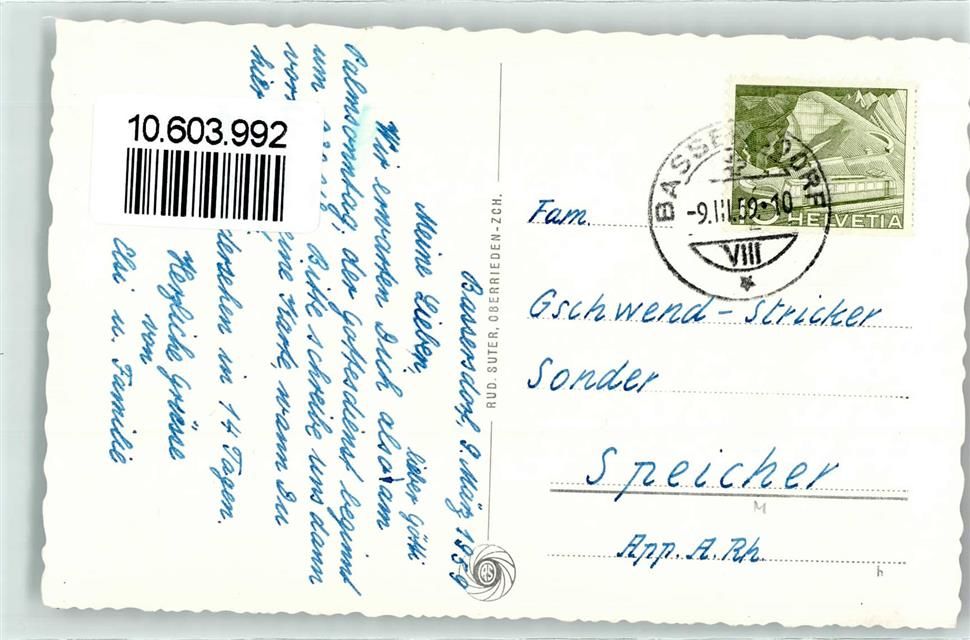 Bassersdorf, 9. März 1959
Meine Lieben,
lieber Götti
Wir erwarten Dich also am
Palmsonntag, der Gottesdienst beginnt
um
vor Bitte schreibe uns dann
hier eine Karte, wann Du
dersehen in 14 Tagen.
Herzliche Grüsse
von
Elsi u. Familie
10.603.992
RUD. SUTER, OBERRIEDEN-ZCH.
RS
HELVETIA
BASSERSDORF
-9.III.59-10
VIII
Fam.
Gschwend-Stricker
Sonder
Speicher
App. A. Rh.
M
h